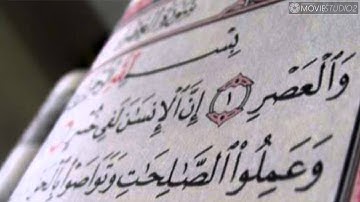 MOVIESTUDIO2
بِسْـ
وَٱلْعَصْرِ ١ إِنَّ ٱلْإِنسَٰنَ لَفِى خُسْرٍ
وَعَمِلُوا۟ ٱلصَّٰلِحَٰتِ وَتَوَاصَوْا۟ بِٱلْحَـ